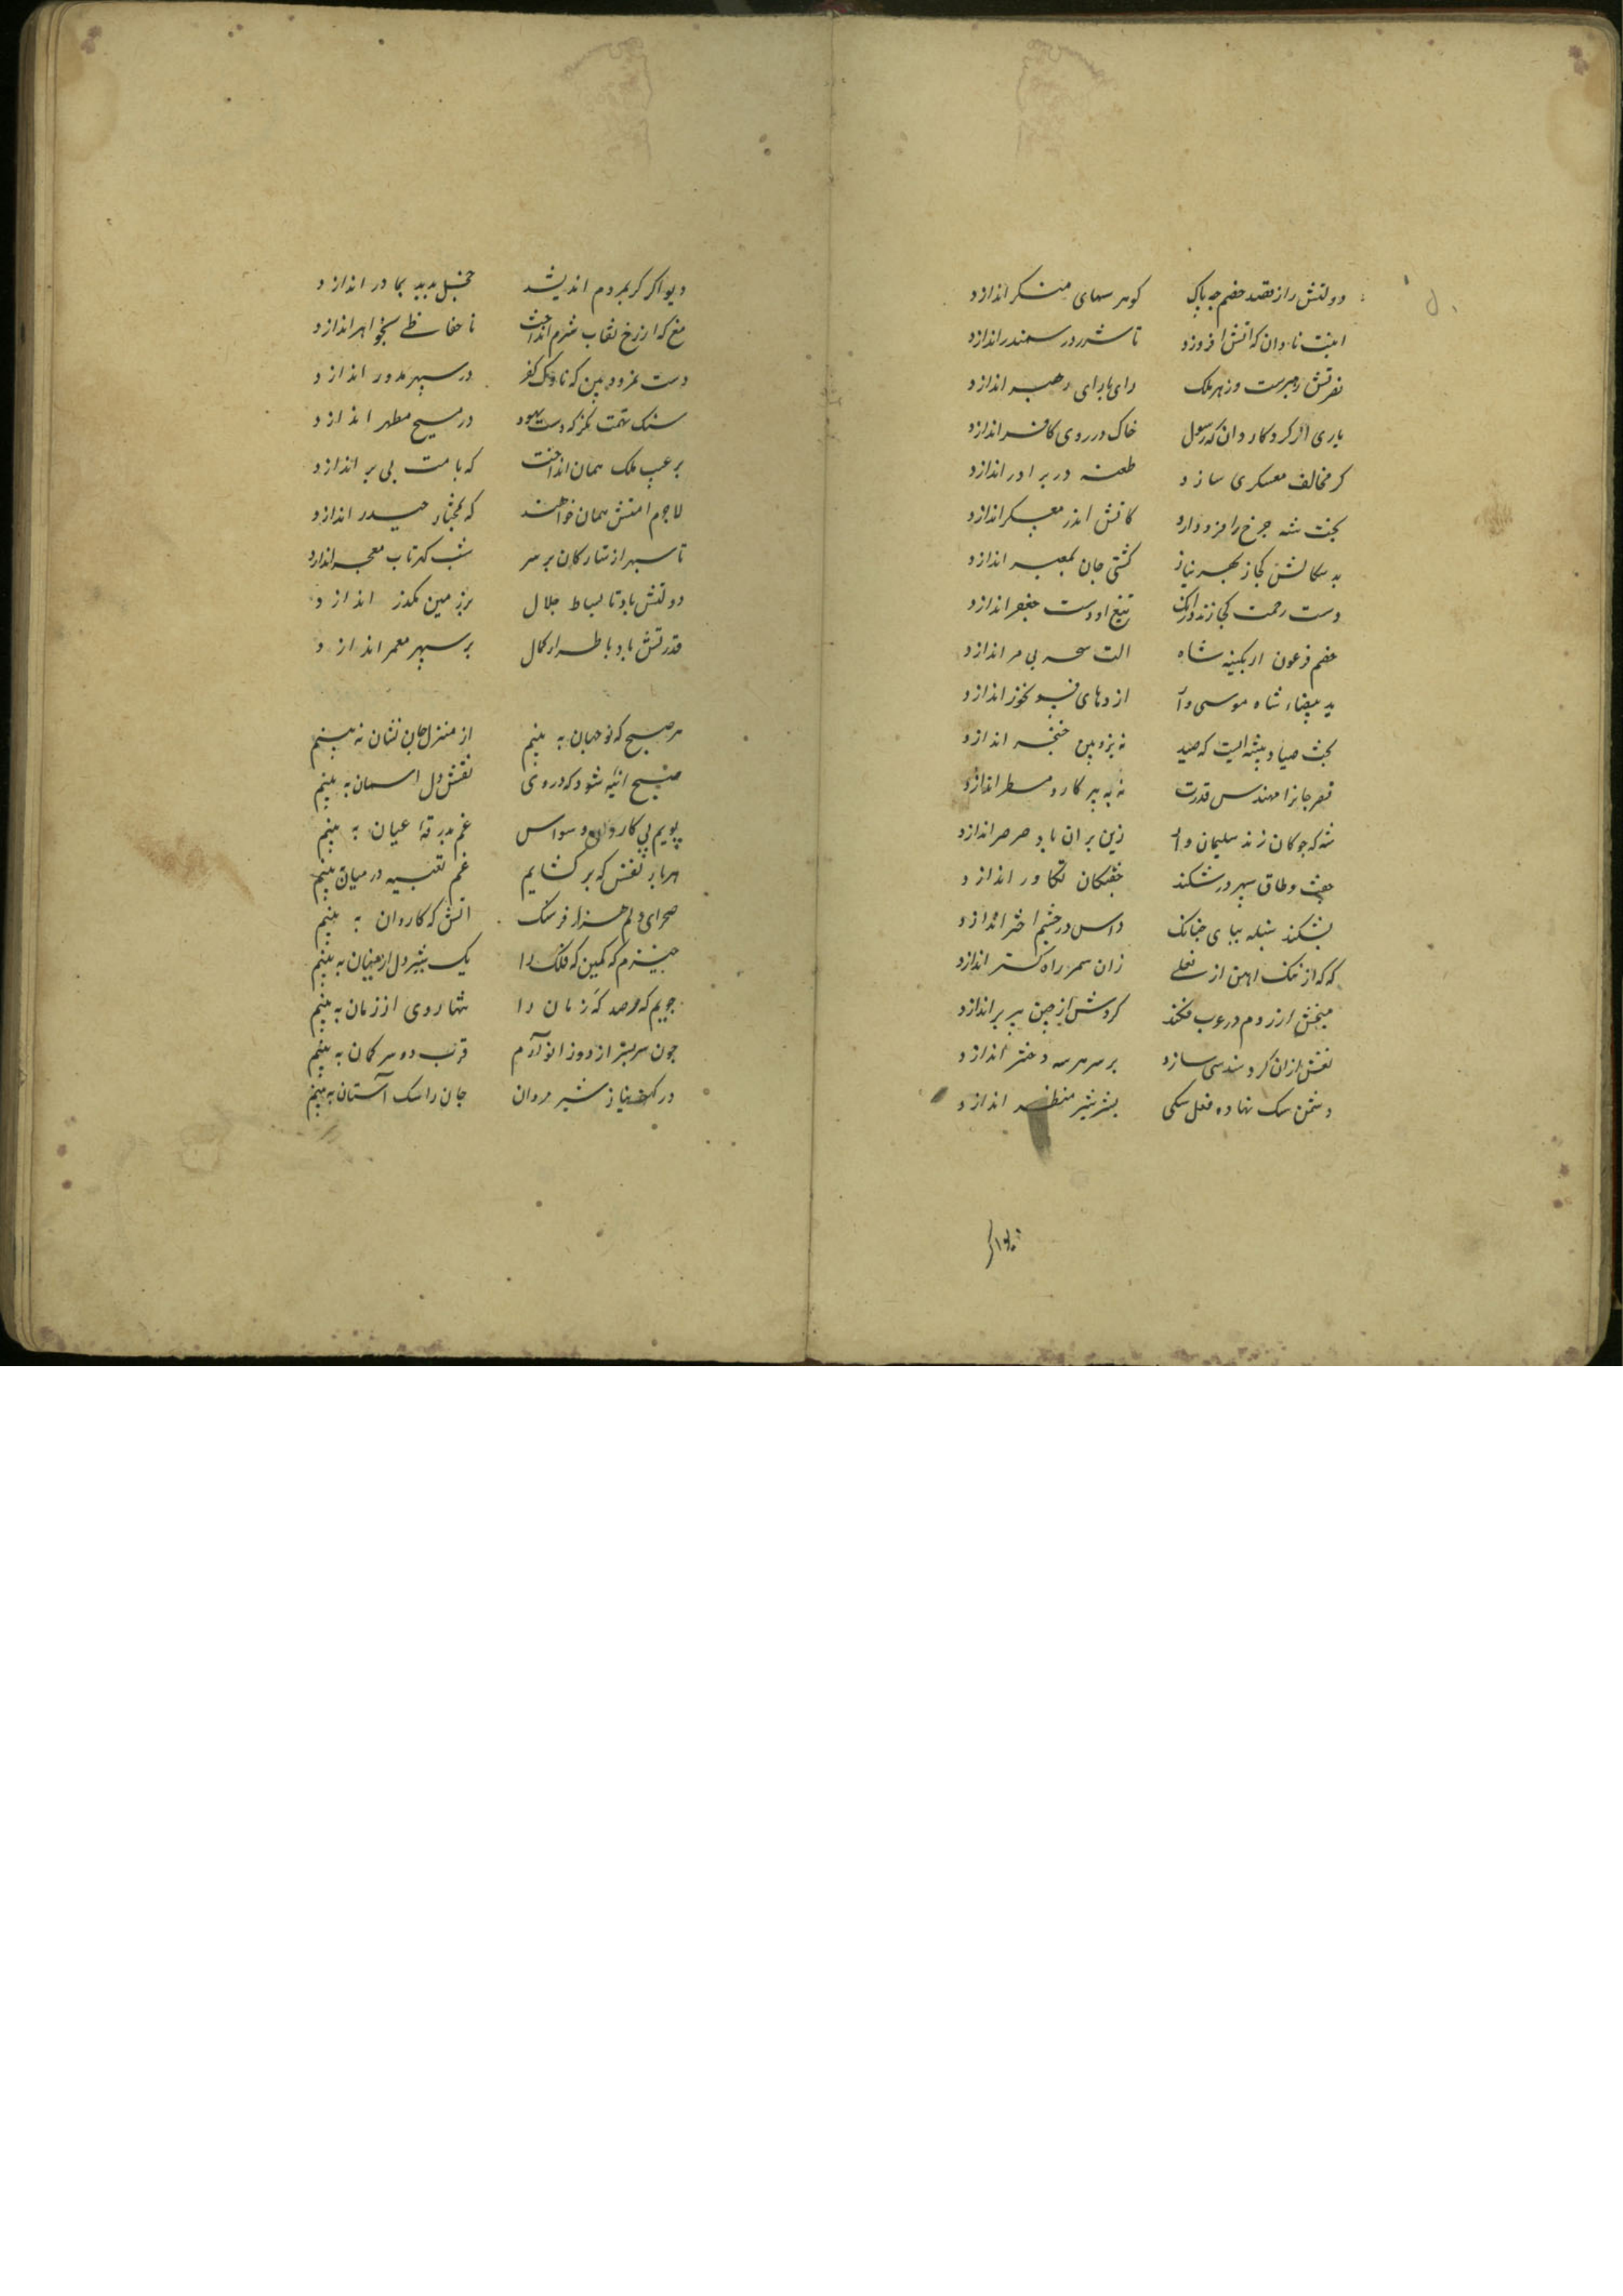 دولتش را از قصد خصم چه باک کوهر سهای منکر اندازد
ابلیست نادان که اتش افروزد تا شرر در سمندر اندازد
نصرتش رهبرست و زهر ملک رای بارای رهبر اندازد
یاری از کردکار دان که رسول خاک در روی کافر اندازد
کر مخالف معسکری سازد طعنه در برادر اندازد
بخت شه چرخ را فرود ارد کاتش اندر معسکر اندازد
بد سکالش کجا ز بحر نیاز کشتی جان بمعبر اندازد
دست رحمت کجا زند در انک تیغ او دست جعفر اندازد
خصم فرعون ار بکینه شاه الت سحر بی مر اندازد
ید بیضاء شاه موسی وار اژدهای فسونخور اندازد
بخت صیاد پیشه ایست که صید نه بزوبین و خنجر اندازد
قصر جانرا مهندس قدرت نه به پرکار و مسطر اندازد
شه که چوکان زند سلیمان وار زین بران باد صرصر اندازد
جفت و طاق سپهر در شکند خفتکان تکاور اندازد
بشکند سنبله بپای چنانک داس در چشم اختر اندازد
که که از سنک اهن از نعلی زان سمر راه کستر اندازد
میخش از روم در عرب فکند کردش از چین ببربر اندازد
نعش ازان کرد سندسی سازد بر سر هر سه دختر اندازد
دشمن سک نهاده فعل سکی بشیر شیر منظر اندازد
دیو اکر کریم دم اندیشد حنبل بدبد بما در اندازد
مغ که از رخ نقاب شرم انداخت نا حفاظی بخواهر اندازد
دست نمرود بین که ناوک کفر در سپهر مدور اندازد
سنک تهمت نکر که دست یهود در مسیح مطهر اندازد
بر عیب ملک همان انداخت که بامت بی بر اندازد
لاجرم امتش همان خواهند که بمختار حیدر اندازد
تا سپهر از ستارکان بر سر شب کهرتاب معجر اندازد
دولتش باد تا بساط جلال بر زمین مکدر اندازد
قدرتش باد با طراز کمال بر سپهر معمر اندازد
هر صبح که نو جهان به بینم از منزل جان نشان نه بینم
صبح آئینه شود که در وی نقش دل اسمان به بینم
پویم پی کاروان وسواس غم بدرقه عیان به بینم
هر بار نفس که بر کشایم غم تعبیه در میان بینم
صحرای دلم هزار فرسنک اتش که کاروان به بینم
خیزم که کمین که فلک را یک شیر دل از جهان به بینم
جویم که مرصد که زمان را تنها روی از زمان به بینم
چون سر بسر از دو زانو آرم قرب دو سر کمان به بینم
در کهف نیاز شیر مردان جان را سک آستان به بینم